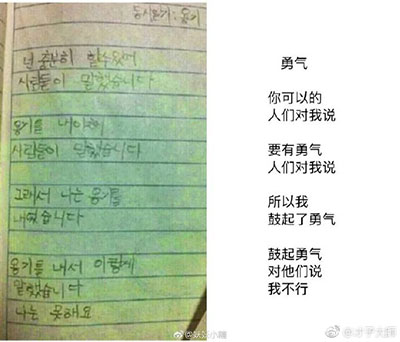 동시쓰기:용기
넌 충분히 할수있어
사람들이 말했습니다
용기를 내야해
사람들이 말했습니다
그래서 나는 용기를
내었습니다
용기를 내서 이렇게
말했습니다
나는 못해요
勇气
你可以的
人们对我说
要有勇气
人们对我说
所以我
鼓起了勇气
鼓起勇气
对他们说
我不行